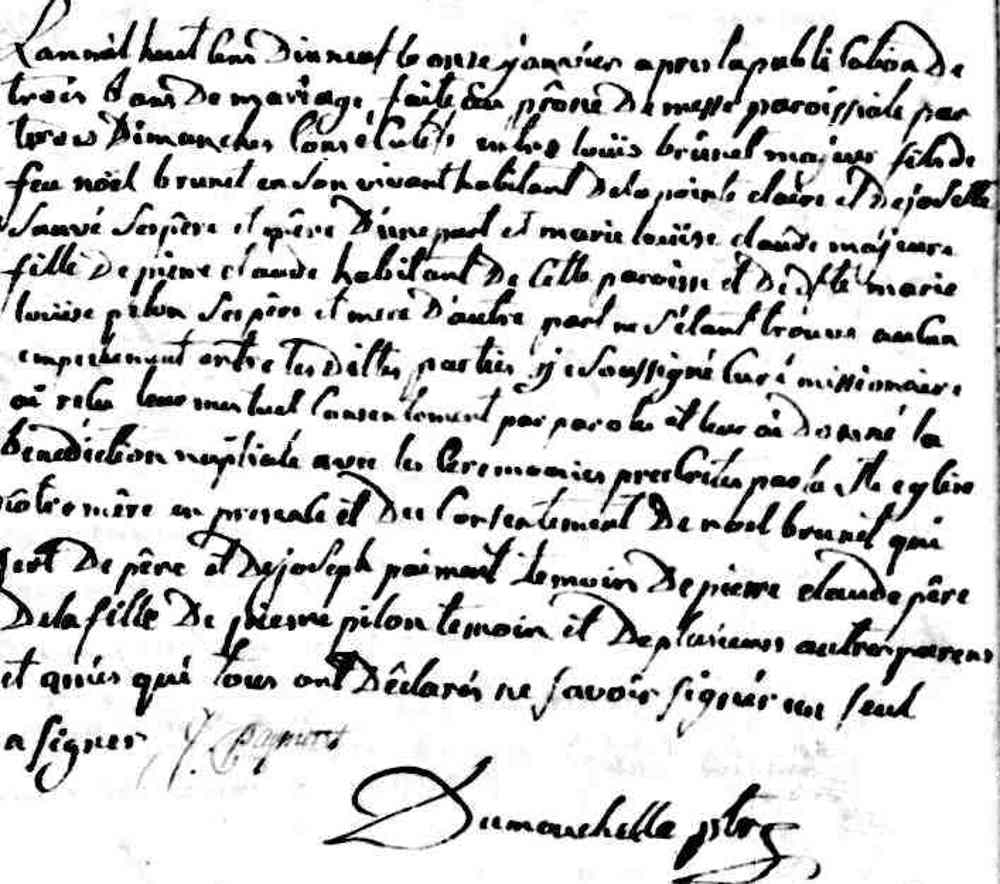 Lan mil huit cens dixneuf le onze janvier apres la publication de
trois bans de mariage faite au prône de messe paroissiale par
trois dimanches consécutifs entre louis brunet majeur fils de
feu noël brunet en son vivant habitant de la pointe claire et de josette
sauvé ses père et mère d'une part et marie louise claude majeure
fille de pierre claude habitant de cette paroisse et de dfte marie
louise pilon ses père et mere d'autre part ne s'étant trouvé aucun
empechement entre les dittes parties je soussigné curé missionnaire
ai reçu leur mutuel consentement par paroles et leur ai donné la
bénédiction nuptiale avec les ceremonies prescrites par la Ste eglise
nôtre mère en presence et du consentement de noel brunet qui
sert de père et de joseph paiment temoin de pierre claude père
de la fille de pierre pilon temoin et de plusieurs autres parens
et amies qui tous ont déclarés ne savoir signér un seul
a signer J. Payment
Dumouchelle ptre